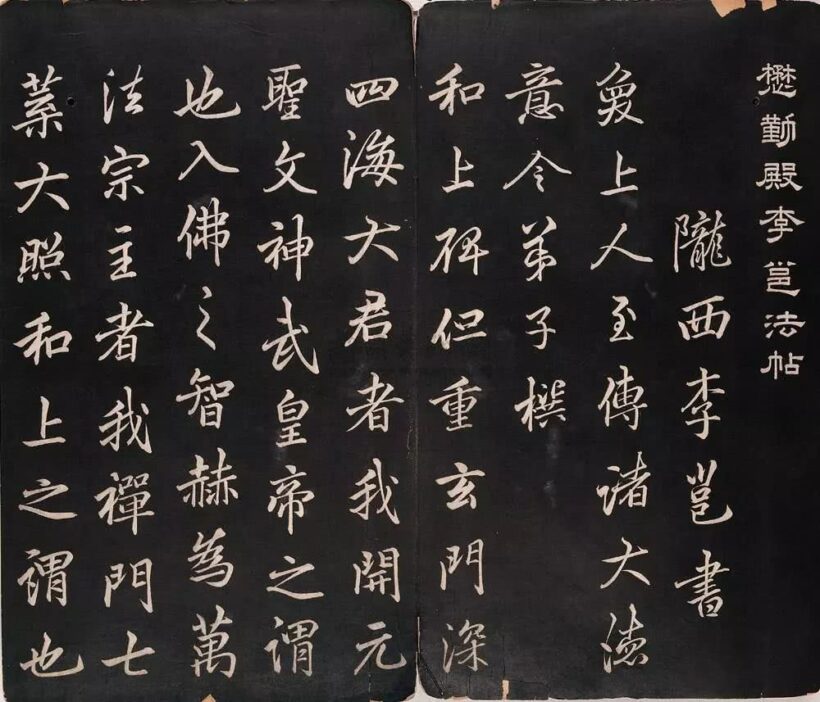 懋勤殿李邕法帖
隴西李邕書
奐上人至傳諸大德
意令弟子撰
和上碑但重玄門深
四海大君者我開元
聖文神武皇帝之謂
也入佛之智赫為萬
法宗主者我禪門七
葉大照和上之謂也